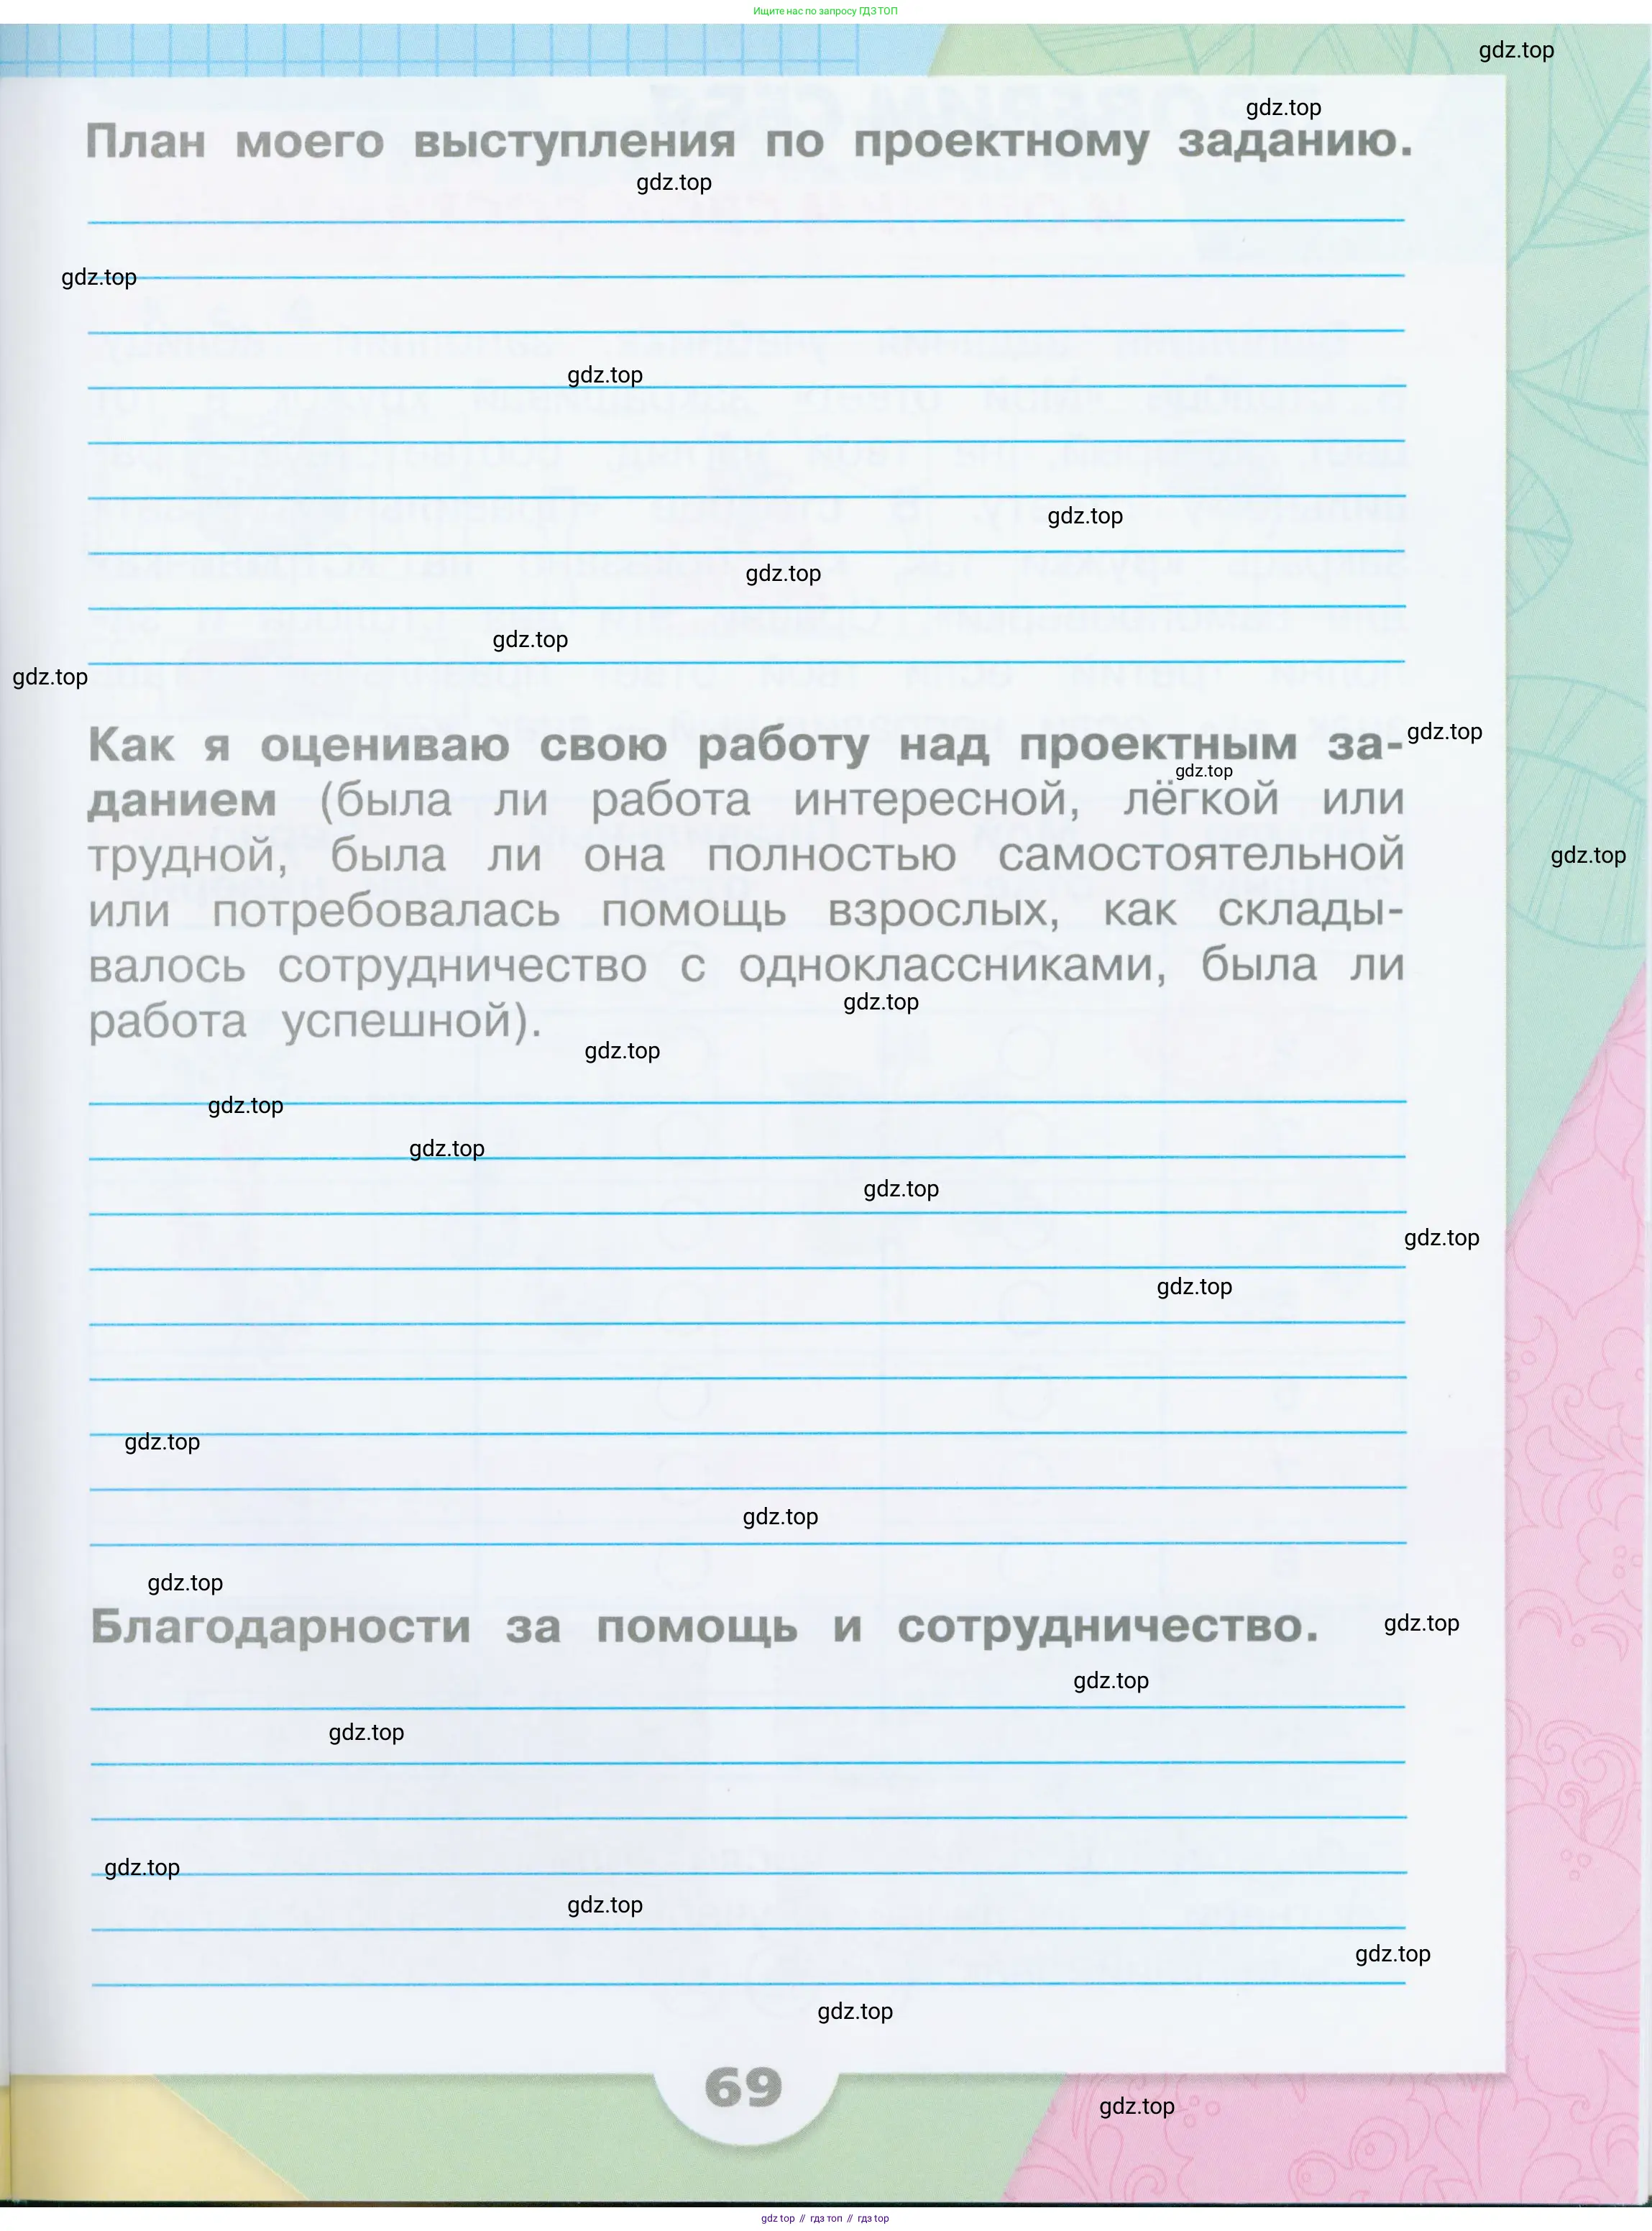 Ищите нас по запросу ГДЗ ТОП
gdz.top
gdz.top
План моего выступления по проектному заданию.
gdz.top
gdz.top
gdz.top
gdz.top
gdz.top
gdz.top
gdz.top
gdz.top
Как я оцениваю свою работу над проектным за-
gdz.top
данием (была ли работа интересной, лёгкой или
трудной, была ли она полностью самостоятельной
gdz.top
или потребовалась помощь взрослых, как склады-
валось сотрудничество с одноклассниками, была ли
gdz.top
работа успешной).
gdz.top
gdz.top
gdz.top
gdz.top
gdz.top
gdz.top
gdz.top
gdz.top
gdz.top
Благодарности за помощь и сотрудничество.
gdz.top
gdz.top
gdz.top
gdz.top
gdz.top
gdz.top
gdz.top
69
gdz.top
gdz.top // гдз топ // гдз top